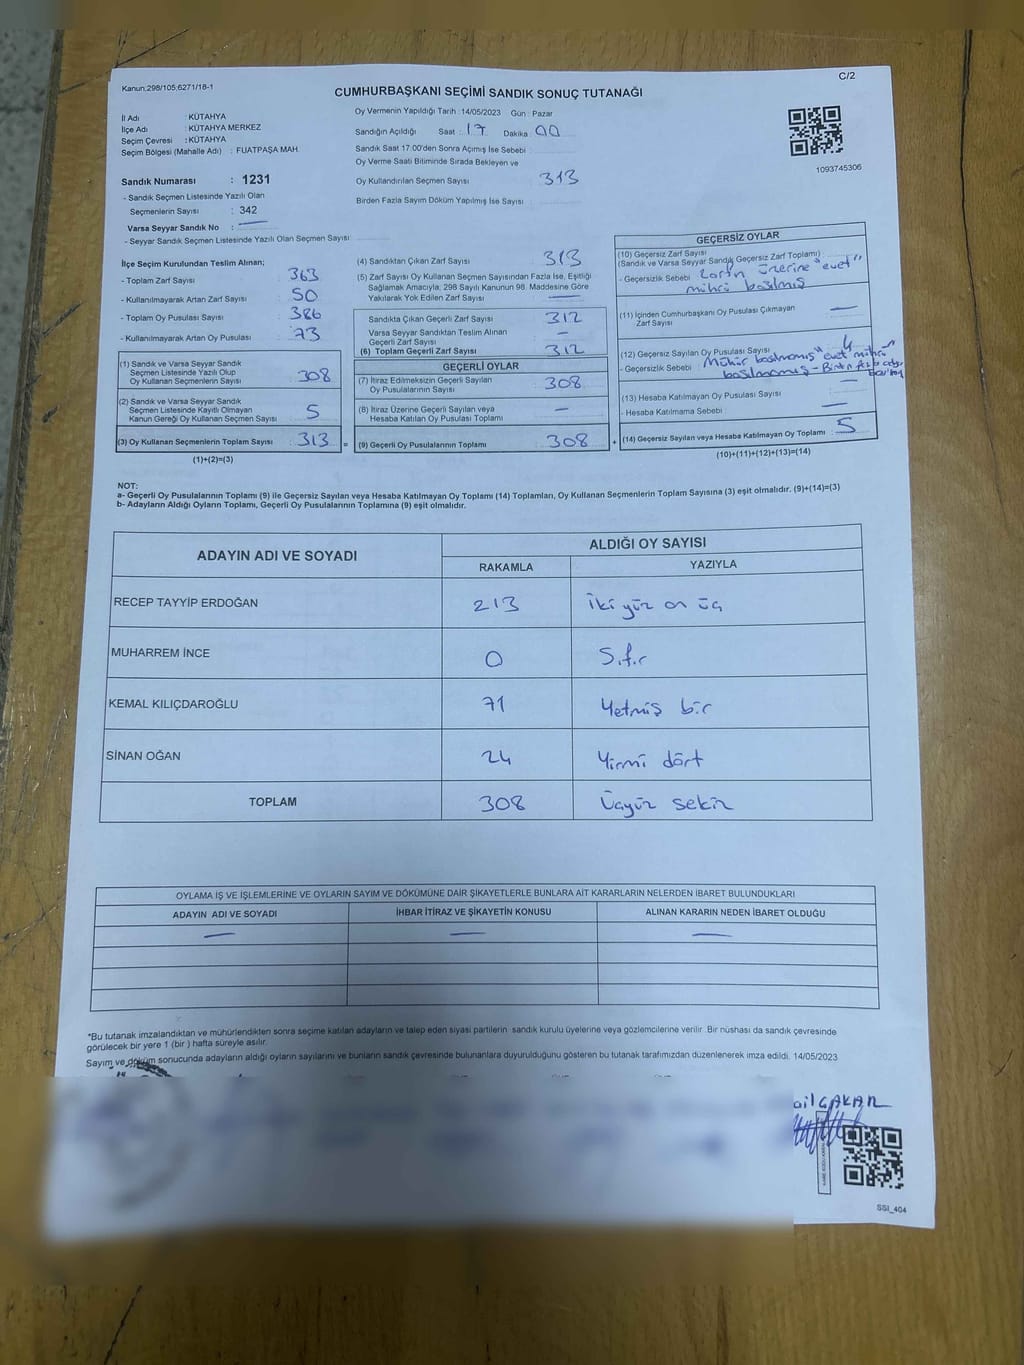 Kanun:298/105;6271/18-1
C/2
CUMHURBAŞKANI SEÇİMİ SANDIK SONUÇ TUTANAĞI
İl Adı : KÜTAHYA
İlçe Adı : KÜTAHYA MERKEZ
Seçim Çevresi : KÜTAHYA
Seçim Bölgesi (Mahalle Adı) : FUATPAŞA MAH.
Sandık Numarası : 1231
- Sandık Seçmen Listesinde Yazılı Olan
Seçmenlerin Sayısı : 342
Varsa Seyyar Sandık No :
- Seyyar Sandık Seçmen Listesinde Yazılı Olan Seçmen Sayısı:
Oy Vermenin Yapıldığı Tarih : 14/05/2023 Gün : Pazar
Sandığın Açıldığı Saat : 17 Dakika : 00
Sandık Saat 17.00'den Sonra Açımış İse Sebebi :
Oy Verme Saati Bitiminde Sırada Bekleyen ve
Oy Kullandırılan Seçmen Sayısı : 313
Birden Fazla Sayım Döküm Yapılmış İse Sayısı :
1093745306
İlçe Seçim Kurulundan Teslim Alınan;
- Toplam Zarf Sayısı : 363
- Kullanılmayarak Artan Zarf Sayısı : 50
- Toplam Oy Pusulası Sayısı : 386
- Kullanılmayarak Artan Oy Pusulası : 73
(1) Sandık ve Varsa Seyyar Sandık
Seçmen Listesinde Yazılı Olup
Oy Kullanan Seçmenlerin Sayısı : 308
(2) Sandık ve Varsa Seyyar Sandık
Seçmen Listesinde Kayıtlı Olmayan
Kanun Gereği Oy Kullanan Seçmen Sayısı : 5
(3) Oy Kullanan Seçmenlerin Toplam Sayısı : 313 =
(1)+(2)=(3)
(4) Sandıktan Çıkan Zarf Sayısı : 313
(5) Zarf Sayısı Oy Kullanan Seçmen Sayısından Fazla İse, Eşitliği
Sağlamak Amacıyla, 298 Sayılı Kanunun 98. Maddesine Göre
Yakılarak Yok Edilen Zarf Sayısı : —
Sandıkta Çıkan Geçerli Zarf Sayısı : 312
Varsa Seyyar Sandıktan Teslim Alınan
Geçerli Zarf Sayısı : —
(6) Toplam Geçerli Zarf Sayısı : 312
GEÇERLİ OYLAR
(7) İtiraz Edilmeksizin Geçerli Sayılan
Oy Pusulalarının Sayısı : 308
(8) İtiraz Üzerine Geçerli Sayılan veya
Hesaba Katılan Oy Pusulası Toplamı : —
(9) Geçerli Oy Pusulalarının Toplamı : 308 +
GEÇERSİZ OYLAR
(10) Geçersiz Zarf Sayısı
(Sandık ve Varsa Seyyar Sandık Geçersiz Zarf Toplamı)
- Geçersizlik Sebebi : Zarfın üzerine "evet"
mührü basılmış
(11) İçinden Cumhurbaşkanı Oy Pusulası Çıkmayan
Zarf Sayısı : —
(12) Geçersiz Sayılan Oy Pusulası Sayısı : 4
- Geçersizlik Sebebi : Mühür basılmamış "evet mührü"
basılmamış - Birden fazla
(13) Hesaba Katılmayan Oy Pusulası Sayısı : —
- Hesaba Katılmama Sebebi : —
(14) Geçersiz Sayılan veya Hesaba Katılmayan Oy Toplamı : 5
(10)+(11)+(12)+(13)=(14)
NOT:
a- Geçerli Oy Pusulalarının Toplamı (9) ile Geçersiz Sayılan veya Hesaba Katılmayan Oy Toplamı (14) Toplamları, Oy Kullanan Seçmenlerin Toplam Sayısına (3) eşit olmalıdır. (9)+(14)=(3)
b- Adayların Aldığı Oyların Toplamı, Geçerli Oy Pusulalarının Toplamına (9) eşit olmalıdır.
ADAYIN ADI VE SOYADI ALDIĞI OY SAYISI
RAKAMLA YAZIYLA
RECEP TAYYİP ERDOĞAN 213 İki yüz on üç
MUHARREM İNCE 0 Sıfır
KEMAL KILIÇDAROĞLU 71 Yetmiş bir
SİNAN OĞAN 24 Yirmi dört
TOPLAM 308 Üçyüz sekiz
OYLAMA İŞ VE İŞLEMLERİNE VE OYLARIN SAYIM VE DÖKÜMÜNE DAİR ŞİKAYETLERLE BUNLARA AİT KARARLARIN NELERDEN İBARET BULUNDUKLARI
ADAYIN ADI VE SOYADI İHBAR İTİRAZ VE ŞİKAYETİN KONUSU ALINAN KARARIN NEDEN İBARET OLDUĞU
— — —
*Bu tutanak imzalandıktan ve mühürlendikten sonra seçime katılan adayların ve talep eden siyasi partilerin sandık kurulu üyelerine veya gözlemcilerine verilir. Bir nüshası da sandık çevresinde
görülecek bir yere 1 (bir) hafta süreyle asılır.
Sayım ve döküm sonucunda adayların aldığı oyların sayılarını ve bunların sandık çevresinde bulunanlara duyurulduğunu gösteren bu tutanak tarafımızdan düzenlenerek imza edildi. 14/05/2023
ail ÇAKAR
SSI_404